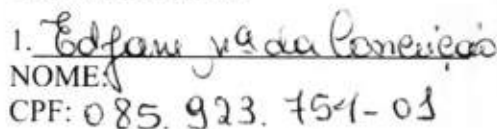 1. Edfam vª da Conceição
NOME:
CPF: 085.923.754-01